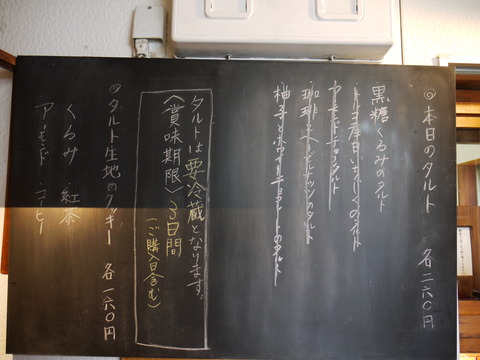 ◎本日のタルト 各二六〇円
黒糖くるみのタルト
トルコ産白いちじくのタルト
アーモンドチョコタルト
珈琲とヘーゼルナッツのタルト
柚子とホワイトチョコレートのタルト
タルトは要冷蔵となります。
〈賞味期限〉3日間
(ご購入日含む)
◎タルト生地のクッキー 各一六〇円
くるみ 紅茶
アーモンド・コーヒー